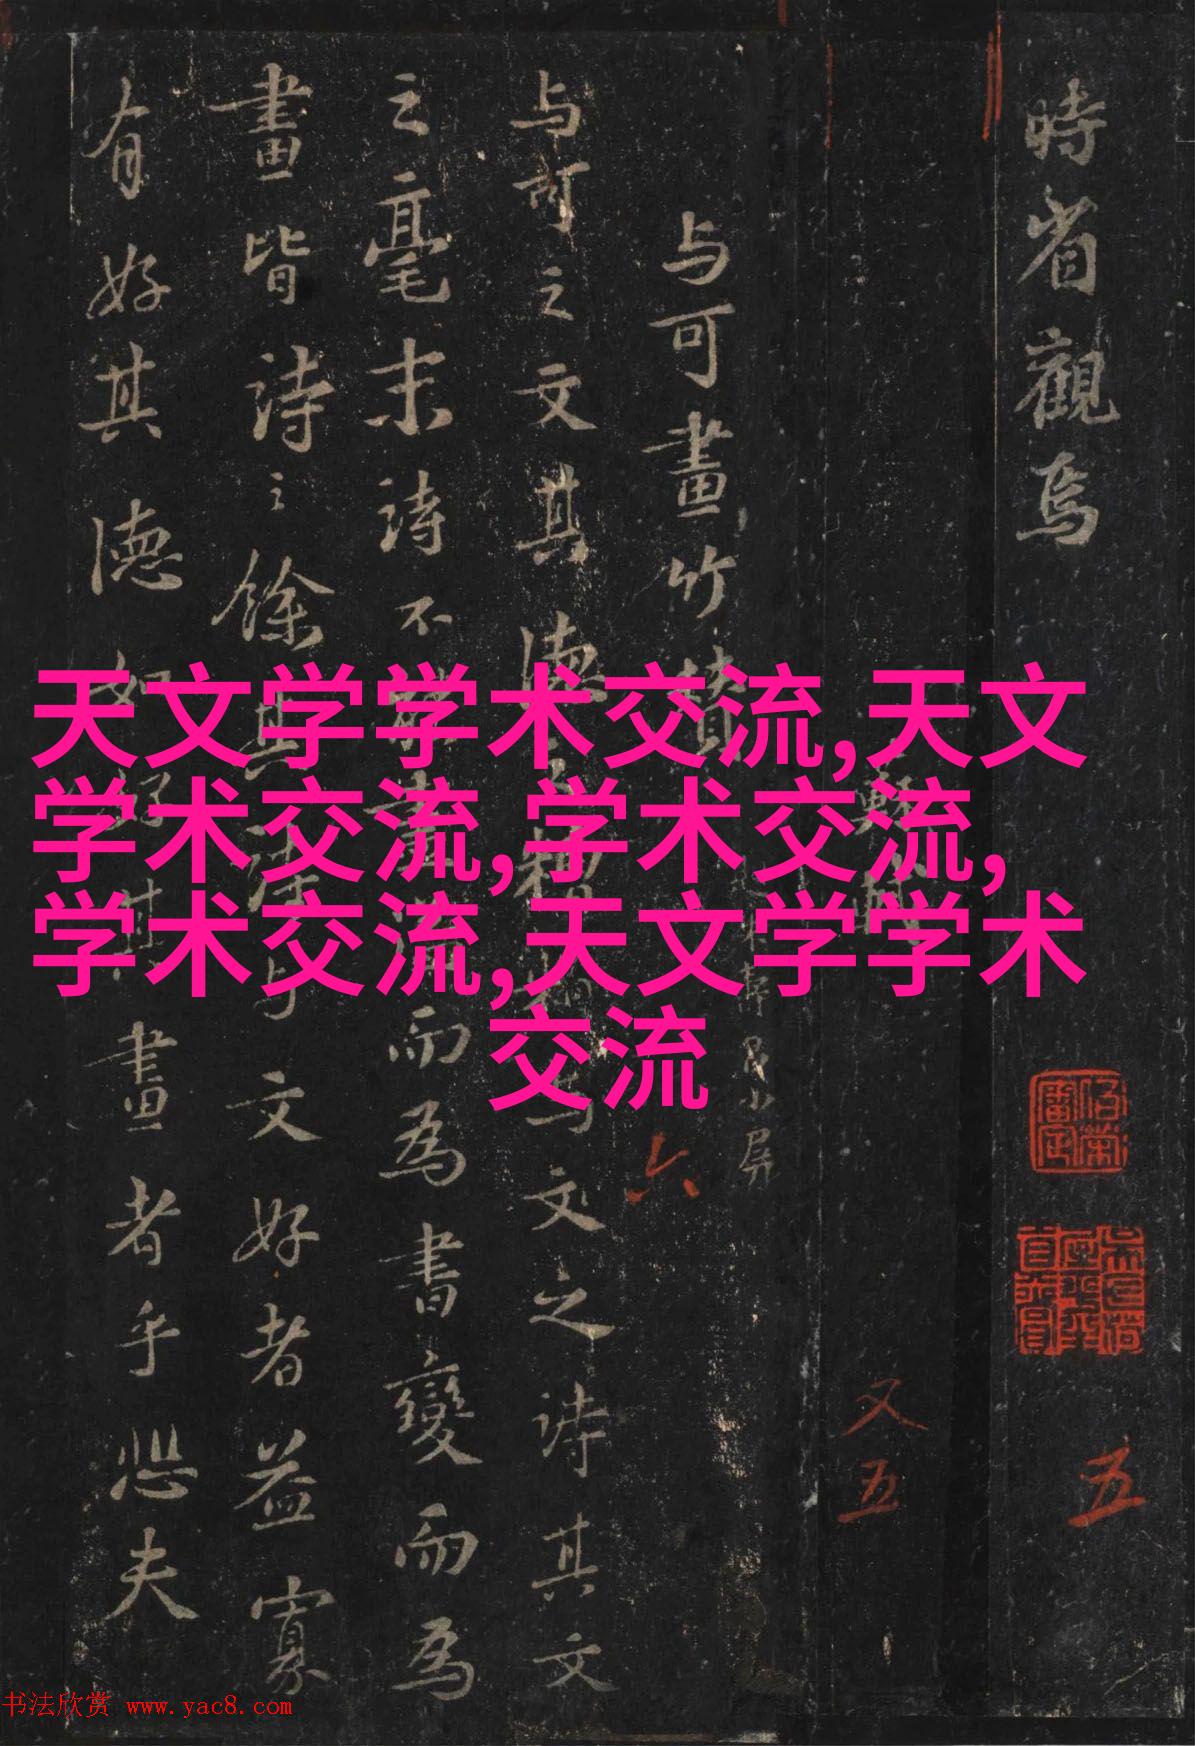 時省觀焉
五
又五
与可畫竹贊
六
与可之文其德之糟粕与文之詩其文
之毫末詩不能盡溢而為書變而為
畫皆詩之餘其詩与文好者益寡
有好其德如好其畫者乎悲夫
天文学学术交流,天文
学术交流,学术交流,
学术交流,天文学学术
交流
书法欣赏 www.yac8.com